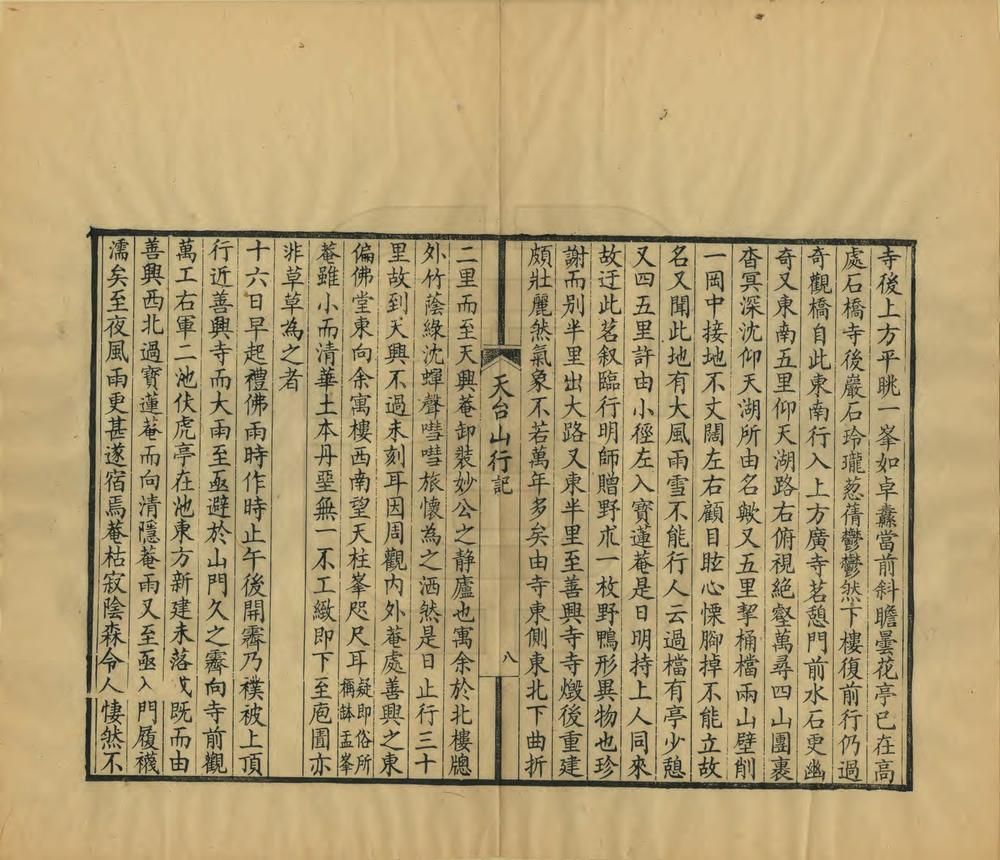 寺後上方平眺一峯如卓纛當前斜瞻曇花亭已在高
處石橋寺後巖石玲瓏蔥蒨鬱鬱然下樓復前行仍過
奇觀橋自此東南行入上方廣寺茗憩門前水石更幽
奇又東南五里仰天湖路右俯視絶壑萬尋四山團裏
杳冥深沈仰天湖所由名歟又五里挈桶檔兩山壁削
一岡中接地不丈闊左右顧目眩心慄腳掉不能立故
名又聞此地有大風雨雪不能行人云過檔有亭少憩
又四五里許由小徑左入寶蓮菴是日明持上人同來
故迂此茗叙臨行明師贈野朮一枚野鴨形異物也珍
謝而别半里出大路又東半里至善興寺寺燬後重建
頗壯麗然氣象不若萬年多矣由寺東側東北下曲折
天台山行記
八
二里而至天興菴卸裝妙公之静廬也寓余於北樓牕
外竹蔭綠沈蟬聲嘒嘒旅懷為之洒然是日止行三十
里故到天興不過未刻耳因周觀内外菴處善興之東
偏佛堂東向余寓樓西南望天柱峯咫尺耳疑即俗所稱鉢盂峯
菴雖小而清華土本丹堊無一不工緻即下至庖圊亦
非草草為之者
十六日早起禮佛雨時作時止午後開霽乃襆被上頂
行近善興寺而大雨至亟避於山門久之霽向寺前觀
萬工右軍二池伏虎亭在池東方新建未落成既而由
善興西北過寶蓮菴而向清隱菴雨又至亟入門履襪
濡矣至夜風雨更甚遂宿焉菴枯寂陰森令人悽然不